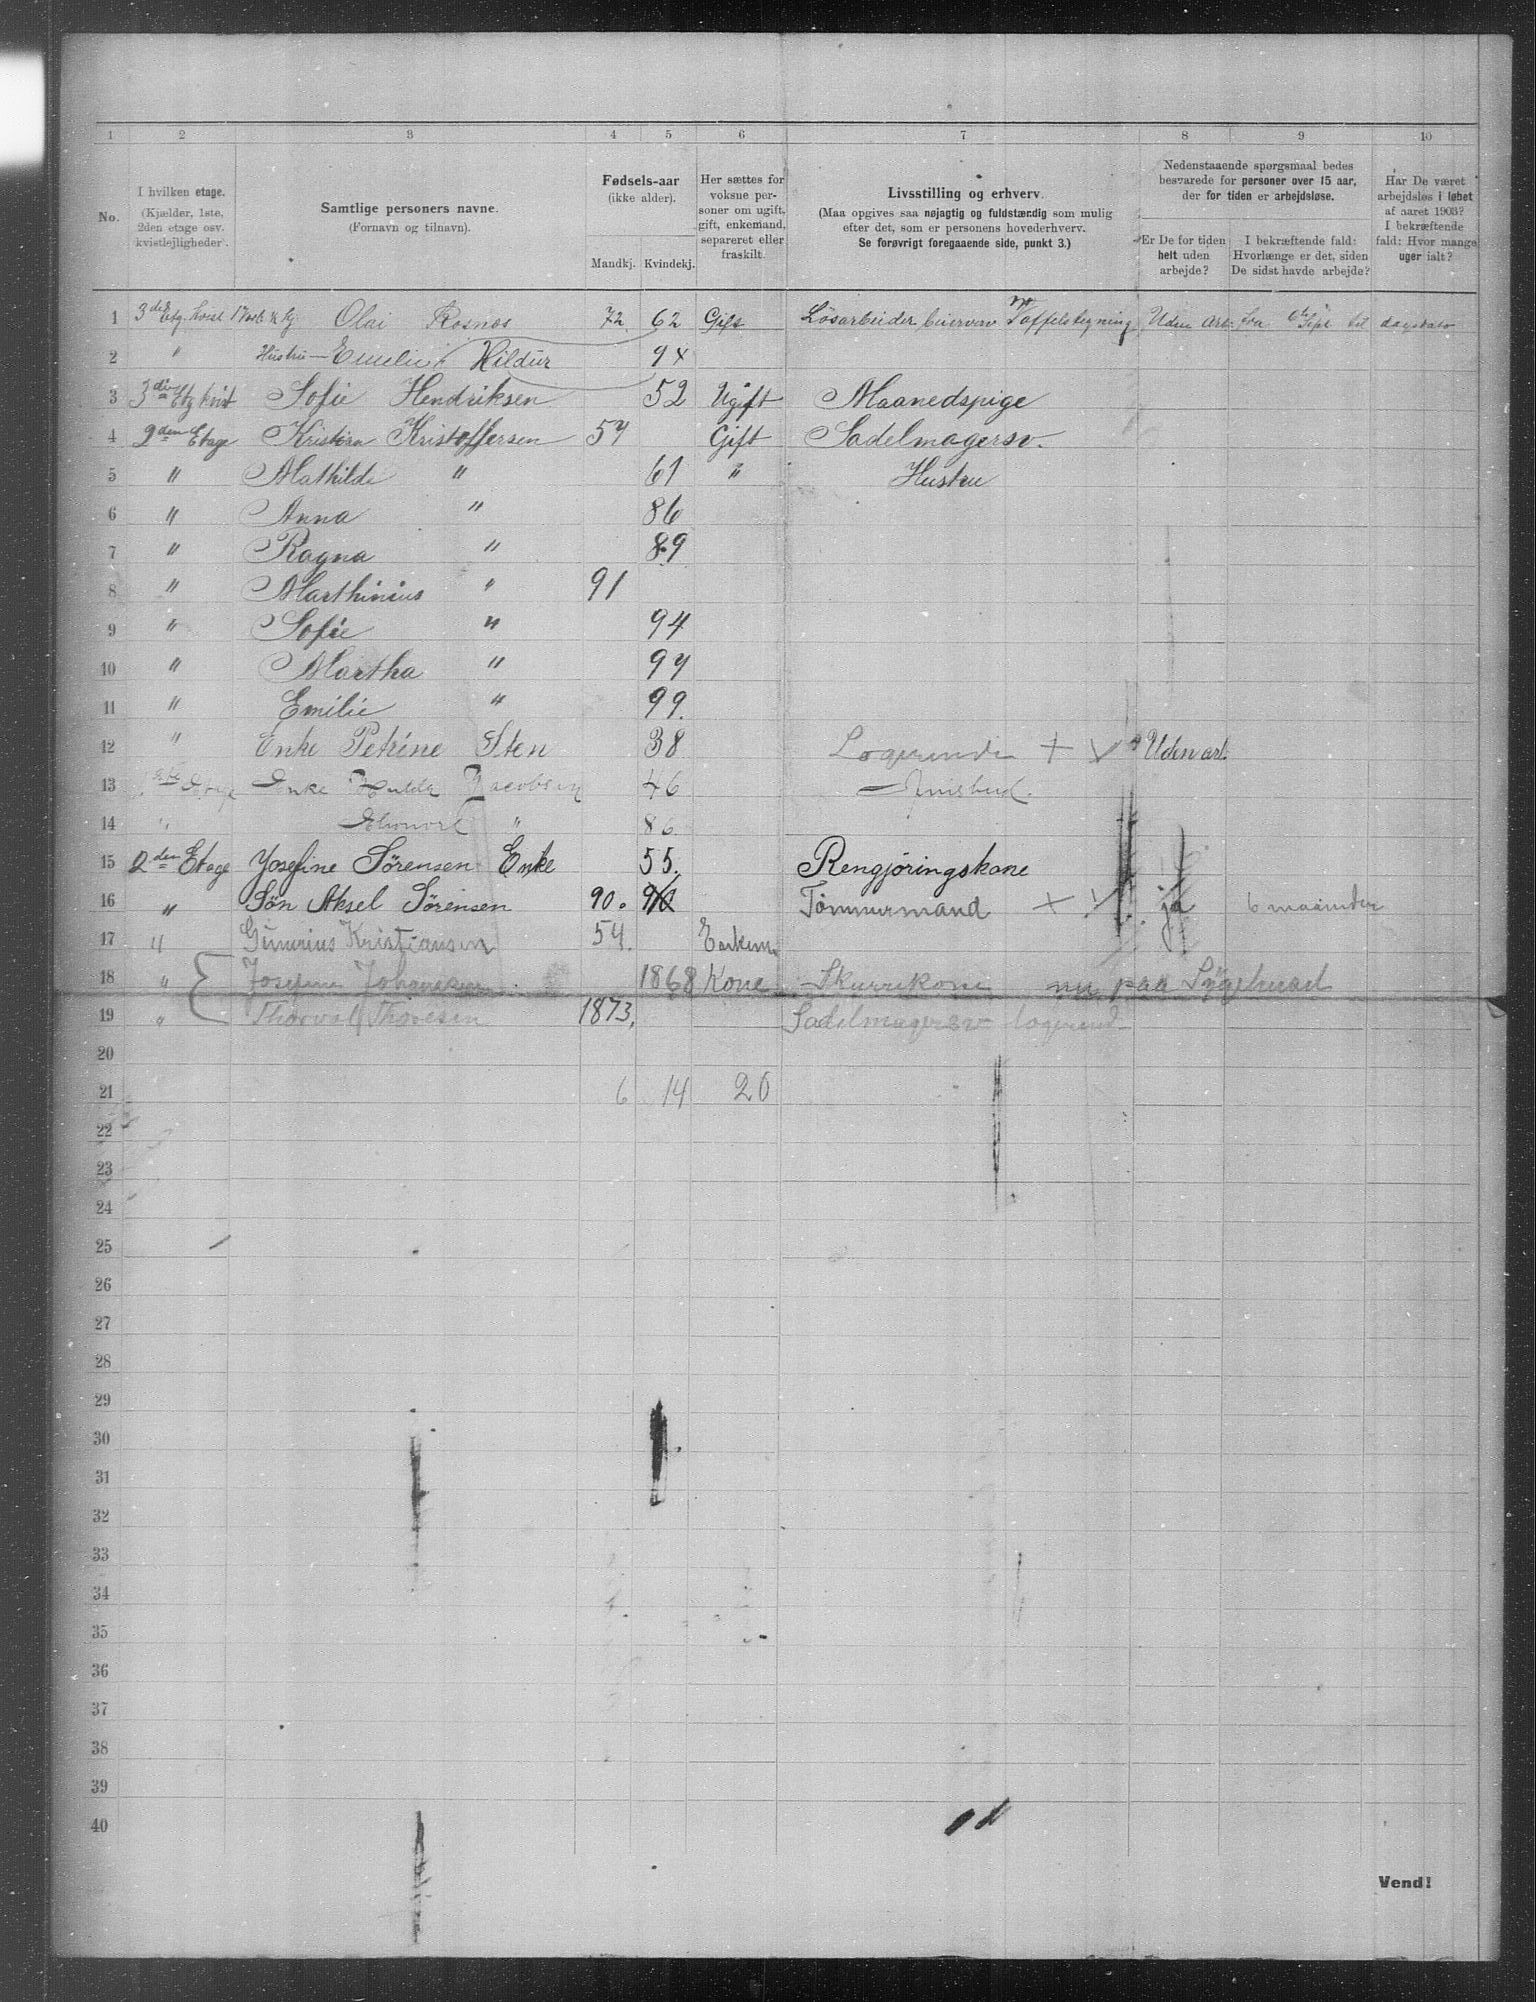 1 2 3 4 5 6 7 8 9 10
No.
I hvilken etage.
(Kjælder, 1ste,
2den etage osv.
kvistlejligheder).
Samtlige personers navne.
(Fornavn og tilnavn).
Fødsels-aar
(ikke alder).
Mandkj. Kvindekj.
Her sættes for
voksne per-
soner om ugift,
gift, enkemand,
separeret eller
fraskilt.
Livsstilling og erhverv.
(Maa opgives saa nøjagtig og fuldstændig som mulig
efter det, som er personens hovederhverv.
Se forøvrigt foregaaende side, punkt 3.)
Nedenstaaende spørgsmaal bedes
besvarede for personer over 15 aar,
der for tiden er arbejdsløse.
Er De for tiden
helt uden
arbejde?
I bekræftende fald:
Hvorlænge er det, siden
De sidst havde arbejde?
Har De været
arbejdsløs i løbet
af aaret 1903?
I bekræftende
fald: Hvor mange
uger ialt?
1 3de Etg. kvist Olai Rosnæs 72 62 Gift Løsarbeider Uden arb. fra Sept til
2 " Hustru — Emelie Hildur 94
3 3die Etg kvist Sofie Hendriksen 52 Ugift Maanedspige
4 2den Etage Kristian Kristoffersen 57 Gift Sadelmagersv.
5 " Mathilde " 61 " Hustru
6 " Anna " 86
7 " Ragna " 89
8 " Marthinius " 91
9 " Sofie " 94
10 " Martha " 97
11 " Emilie " 99.
12 " Enke Petrine Sten 38 Logerende + V Uden arb.
13 Etage Enke Hulda Jacobsen 46
14 " " 86
15 2den Etage Josefine Sørensen Enke 55. Rengjøringskone
16 " Søn Aksel Sørensen 90. 90 Tømmermand + V ja 6 maaneder
17 " Gunerius Kristiansen 54. Enkem.
18 " Josefine Johannesen 1868 Kone Skurekone nu paa Sygehuset
19 " Thorvald Thoresen 1873. Sadelmagersv logerend
20
21 6 14 20
22
23
24
25
26
27
28
29
30
31
32
33
34
35
36
37
38
39
40
Vend!